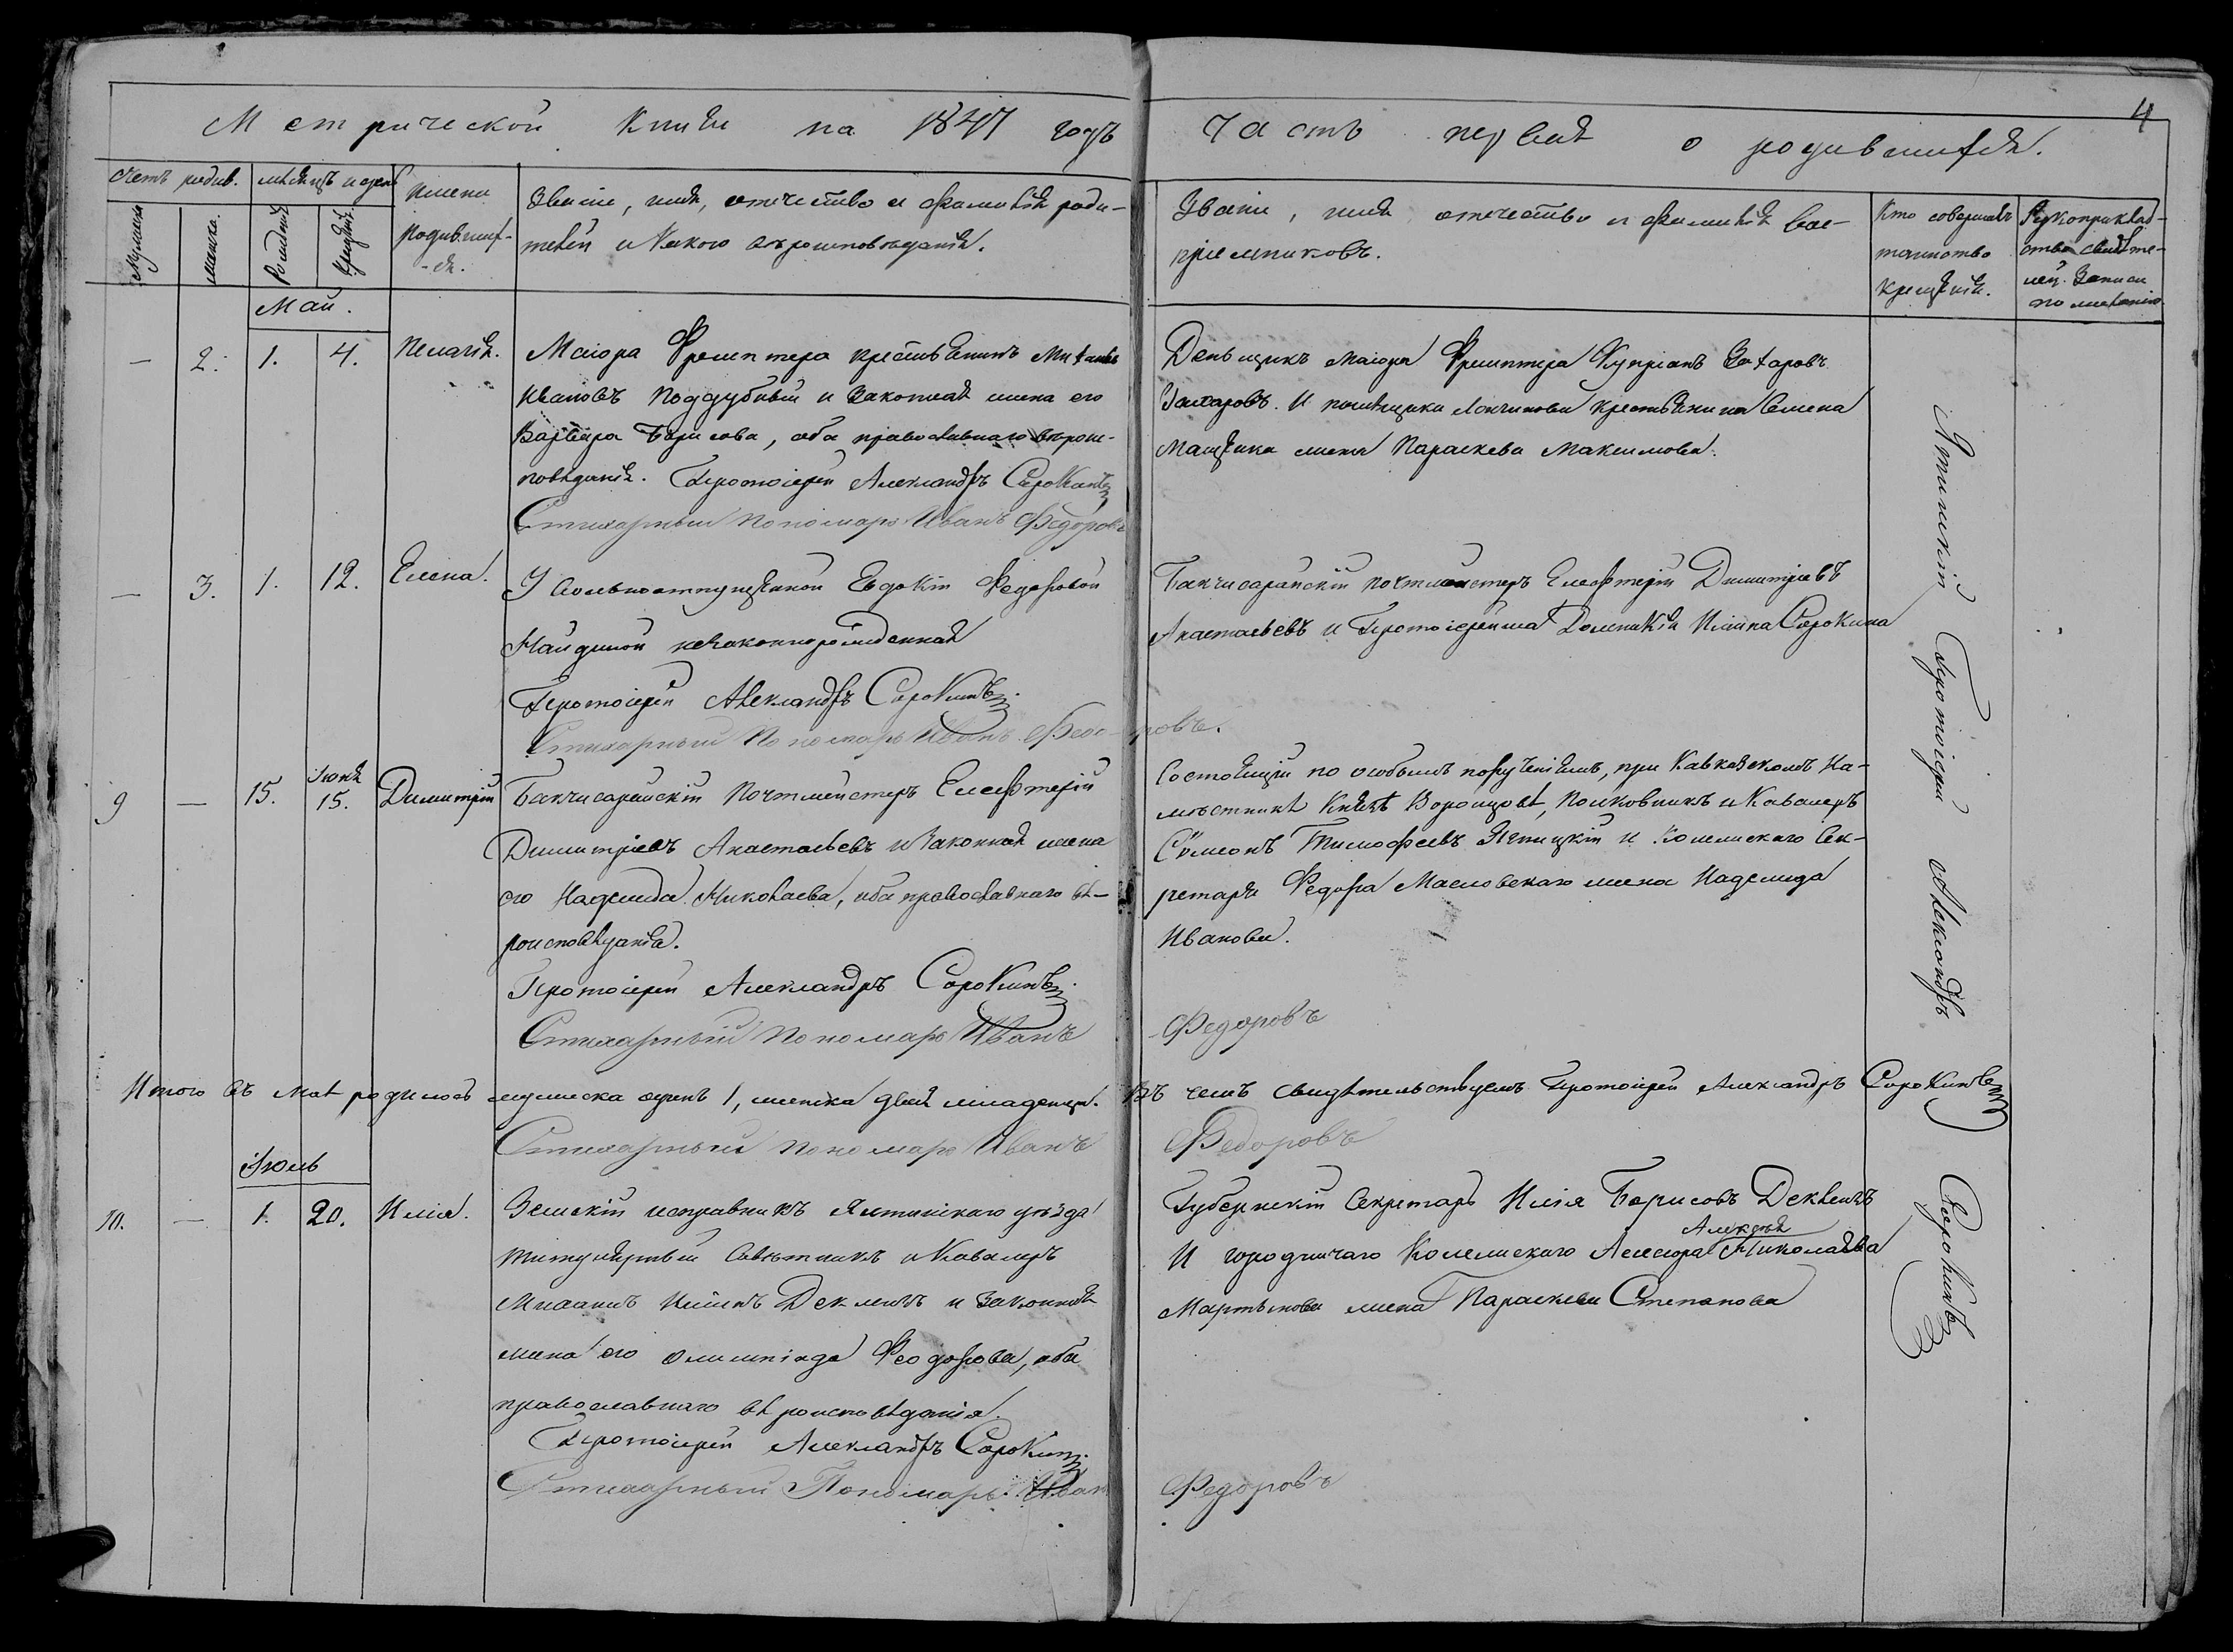 Метрической книги на 1847 годъ
Часть первая о родившихся.
4
Счетъ родив.
мѣсяцъ и день
имена родившихся.
Званіе, имя, отечество и фамилія роди-
телей и какого вѣроисповѣданія.
Званіе, имя отечество и фамилія вос-
пріемниковъ.
Кто совершалъ
таинство
крещенія.
Рукоприклад-
ство свидѣте-
лей записи
по желанію
Мужеска
женска.
Рожденія
Крещенія
Май.
— 2. 1. 4. Пелагія.
Маіора крестьянинъ
Ивановъ Поддубный и законная жена его
Варвара Борисова, оба православнаго вѣроис-
повѣданія. Протоіерей Александръ Сорокинъ
Стихарный пономарь Иванъ Федоровъ
Деньщикъ маіора Купріанъ Захаровъ
Захаровъ. И помѣщика крестьянина Семена
жена Параскева Максимова.
— 3. 1. 12. Елена.
У вольноотпущенной Евдокіи Федоровой
Найдиной незаконнорожденная
Протоіерей Александръ Сорокинъ
Стихарный Пономарь Иванъ Федоровъ.
Бакчисарайскій почтмейстеръ Елефтерій Димитріевъ
Анастасьевъ и Протоіерейша Ильина Сорокина
9 — 15. Іюня 15. Димитрій
Бакчисарайскій Почтмейстеръ Елефтерій
Димитріевъ Анастасьевъ и законная жена
его Надежда Николаева, оба православнаго вѣ-
роисповѣданія.
Протоіерей Александръ Сорокинъ
Стихарный Пономарь Иванъ Федоровъ
Состоящій по особымъ порученіямъ, при Кавказскомъ На-
мѣстникѣ Князѣ Воронцовѣ, Полковникъ и Кавалеръ
Сѵмеонъ Тимофеевъ и Коллежскаго Сек-
ретаря Федора Масловскаго жена Надежда
Иванова.
Итого въ маѣ родилось мужеска одинъ 1, женска двѣ младенцы. Въ чемъ свидѣтельствуемъ Протоіерей Александръ Сорокинъ
Стихарный Пономарь Иванъ Федоровъ
Іюль
10. — 1. 20. Илія.
Земскій исправникъ Ялтинскаго уѣзда
Титулярный Совѣтникъ и Кавалеръ
и законная
жена его Олимпіада Феодорова, оба
православнаго вѣроисповѣданія.
Протоіерей Александръ Сорокинъ
Стихарный Пономарь Иванъ Федоровъ
Губернскій Секретарь Илія Борисовъ
Алексѣя
И городничаго Коллежскаго Асессора Николаева
Мартынова жена Параскева Степанова
Ялтинскій Протоіерей Александръ Сорокинъ